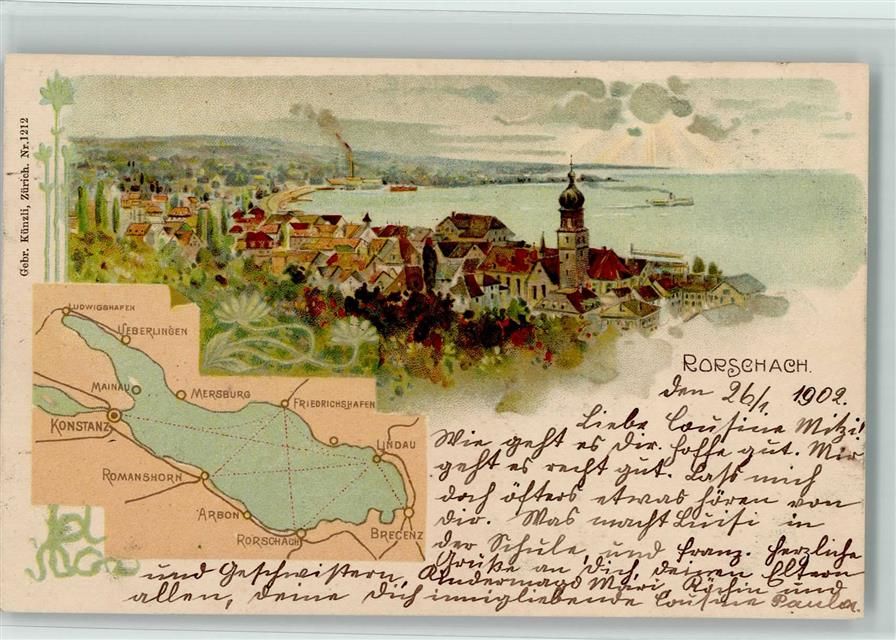 Gebr. Künzli, Zürich. Nr. 1212
RORSCHACH.
LUDWIGSHAFEN
UEBERLINGEN
MAINAU
MERSBURG
KONSTANZ
FRIEDRICHSHAFEN
LINDAU
ROMANSHORN
ARBON
RORSCHACH
BREGENZ
den 26/1. 1902.
Liebe Cousine Mitzi!
Wie geht es Dir. hoffe gut. Mir
geht es recht gut. Lass mich
doch öfters etwas hören von
dir. Was macht Luisi in
der Schule, und franz. herzliche
Grüße an dich, deinen Eltern
und Geschwistern, Kindermagd Mari, Köchin und
allen, deine dich innigliebende Cousine Paula.